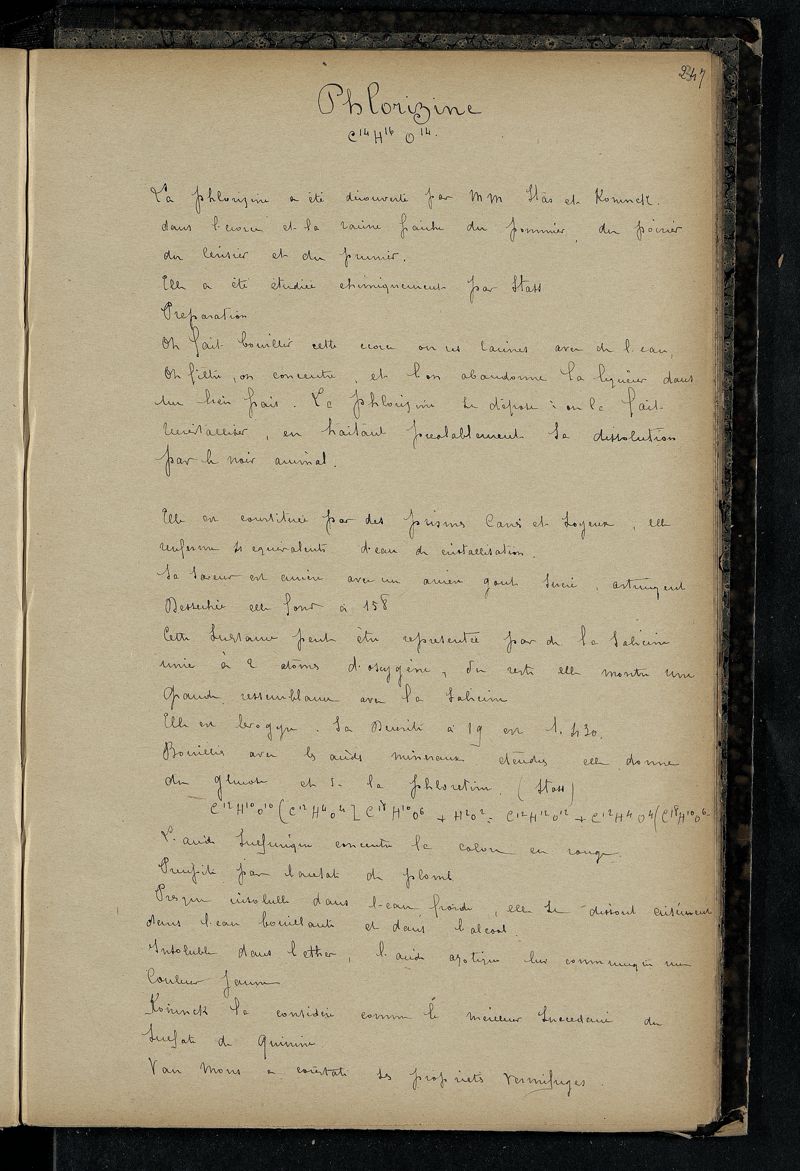 247
Phlorizine
C14 H16 O14.
La phlorizine a été découverte par MM Stas et Koninck.
dans l'ecorce et la racine fraiche du pommier, du poirier
du cerisier et du prunier.
Elle a été étudiée chimiquement par Stass
Preparation
On fait bouillir cette ecorce ou ces racines avec de l'eau,
On filtre, on concentre, et l'on abandonne la liqueur dans
un lieu frais. La Phlorizine se dépose : on la fait
cristalliser, en traitant prealablement la dissolution
par le noir animal.
Elle est constituée par des prismes blancs et soyeux, elle
renferme 4 equivalents d'eau de cristallisation.
Sa saveur est amère avec un arrière gout sucré, astringent
Dessechée elle fond à 158
Cette substance peut être representée par de la Salicine
unie à 2 atômes d'oxygène, du reste elle montre une
grande ressemblance avec la Salicine
Elle est levogyre. Sa Densité à 19 est 1.430.
Bouillie avec les acides mineraux étendus elle donne
du glucose et de la phloretine (Stass)
C12H10O10(C12H4O4[C18H10O6 + H2O2 = C12H12O12 + C12H4O4(C18H10O6
L'acide sulfurique concentré la colore en rouge.
Precipité par l'acetate de plomb
Presque insoluble dans l'eau froide, elle se dissout aisément
dans l'eau bouillante et dans l'alcool.
Insoluble dans l'ether, l'acide azotique leur communique une
couleur jaune
Koninck la considère comme le meilleur succedané du
sulfate de quinine.
Van Mons a constaté ses propriets vermifuges.